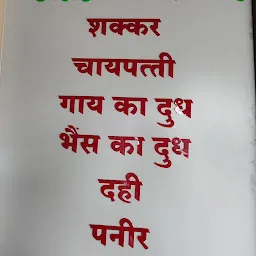 शक्कर
चायपत्ती
गाय का दुध
भैंस का दुध
दही
पनीर